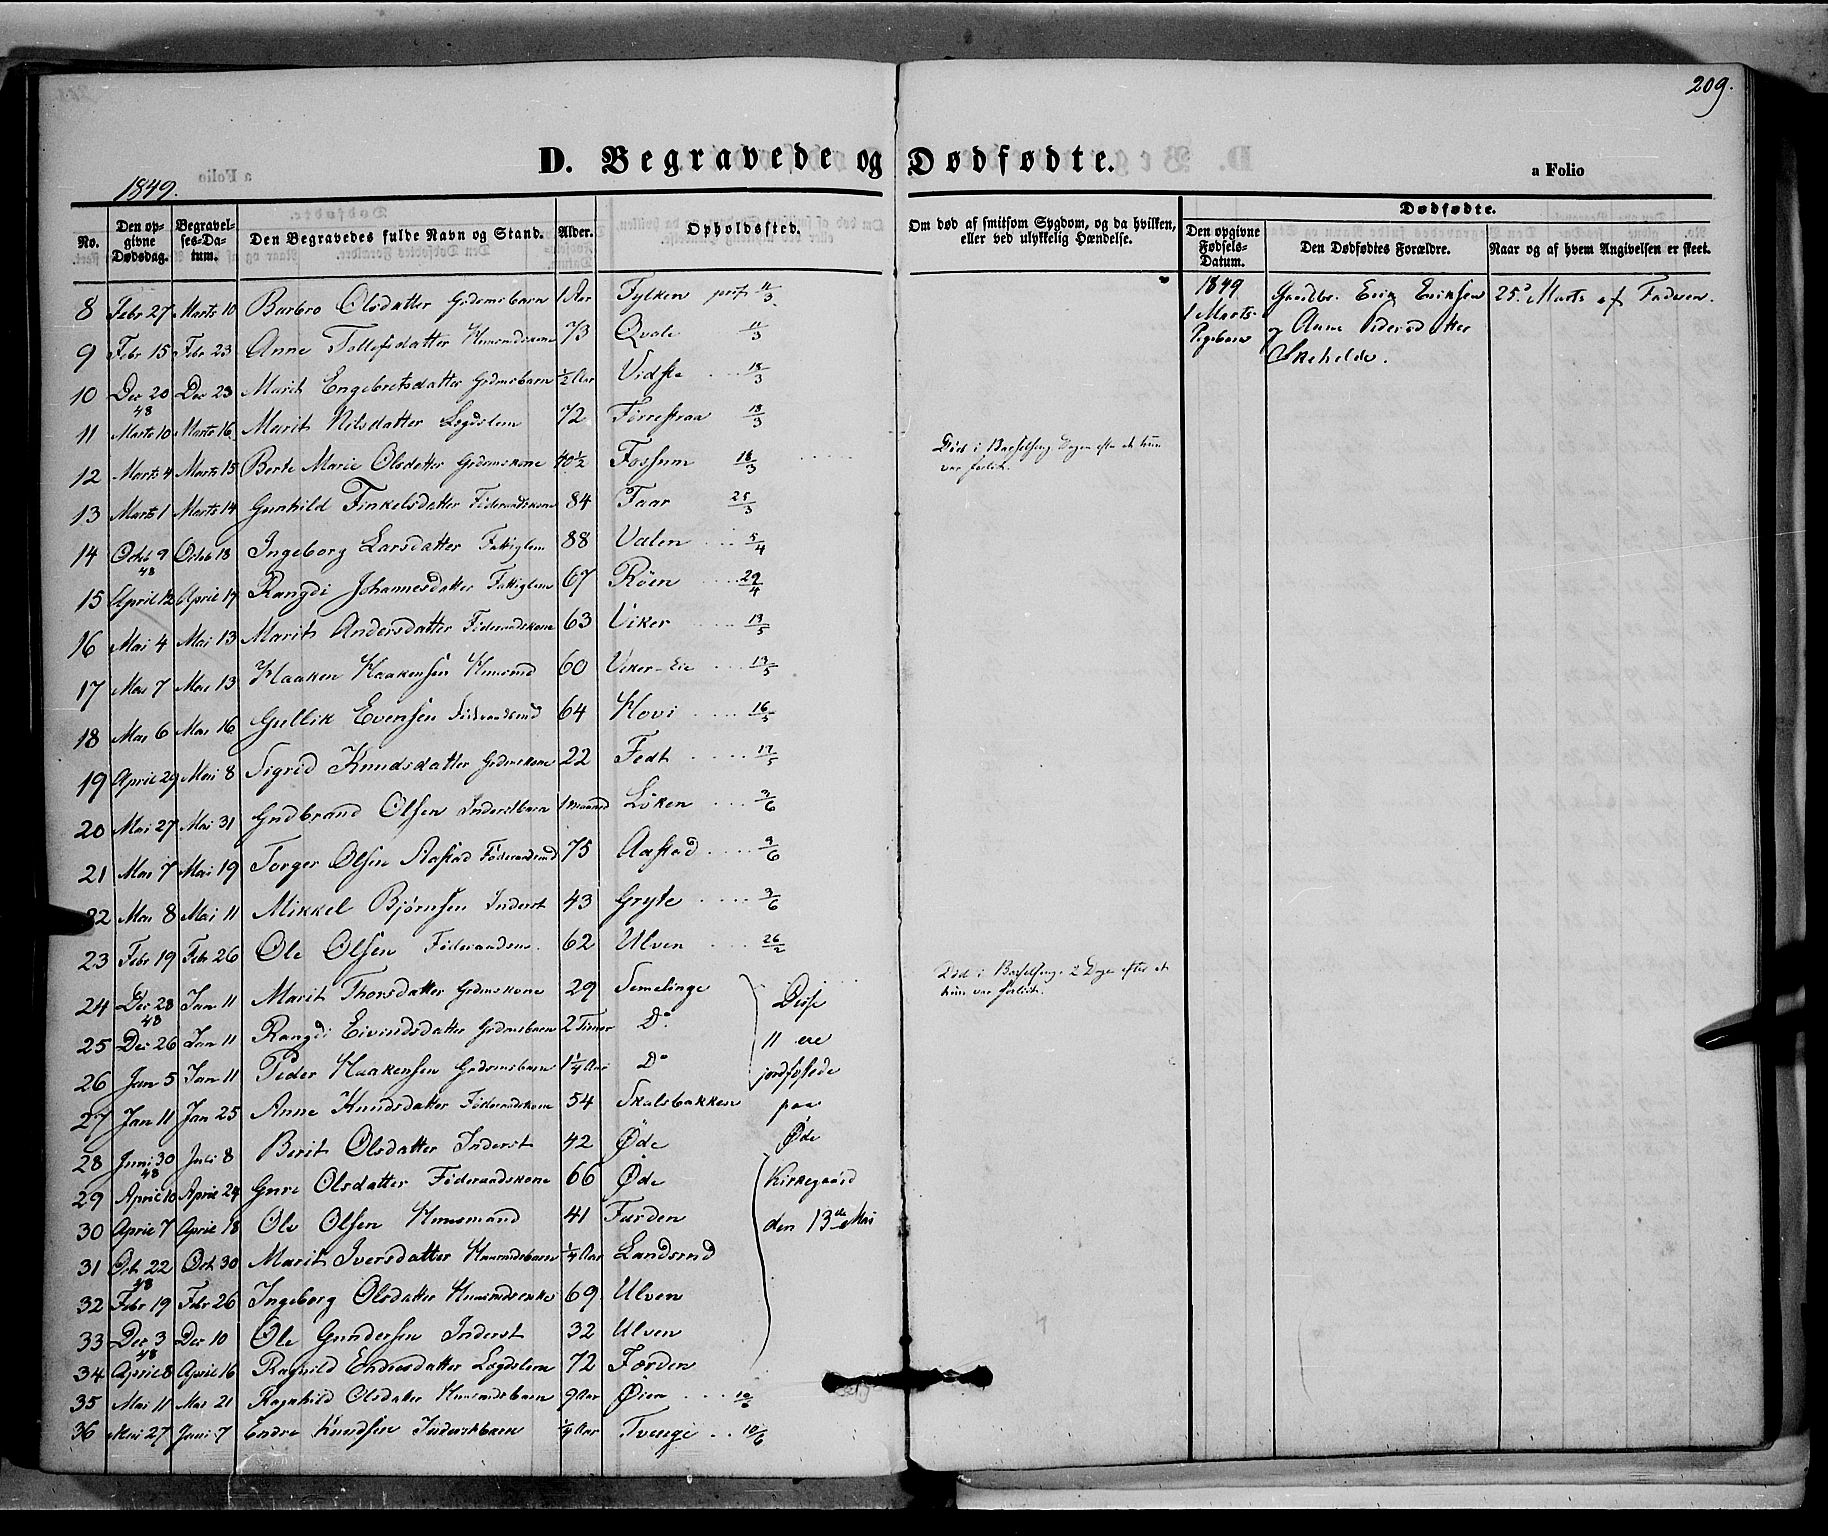 209.
D. Begravede og Dødfødte.
a Folio
1849.
No. Den opgivne Dødsdag. Begravelses-Datum. Den Begravedes fulde Navn og Stand. Alder. Opholdssted. Om død af smitsom Sygdom, og da hvilken, eller ved ulykkelig Hændelse. Dødfødte.
Den opgivne Fødsels-Datum. Den Dødfødtes Forældre. Naar og af hvem Angivelsen er skeet.
8 Febr 27 Marts 10 Barbro Olsdatter Grdmsbarn 1 Aar Fylken 11/3
1849 1 Marts Gaardbr. Erik Eriksen 25 Marts af Faderen.
Pigebarn og Anne Pedersdatter
Skehelde.
9 Febr 15 Febr 23 Anne Tollefsdatter Husmdskone 73 Qvale 11/3
10 Dec 20 48 Dec 23 Marit Engebretsdatter Grdmsbarn 1/2 Aar Vidste 18/3
11 Marts 10 Marts 16 Marit Nilsdatter Lægdslem 72 Tørrestraa 18/3
12 Marts 4 Marts 15 Berte Marie Olsdatter Grdmskone 40 1/2 Fossum 18/3 Død i Barselseng Dagen efter at hun
var forløst.
13 Marts 1 Marts 14 Gunhild Finkelsdatter Føderaadskone 84 Faar 25/3
14 Octob 9 48 Octob 18 Ingeborg Larsdatter Fattiglem 88 Valen 5/4
15 April 12 April 17 Rangdi Johannesdatter Fattiglem 67 Röen 29/4
16 Mai 4 Mai 13 Marit Andersdatter Föderaadskone 63 Viker 13/5
17 Mai 7 Mai 13 Haaken Haakensen Husmnd 60 Viker-Eie 13/5
18 Mai 6 Mai 16 Gullik Evensen Föderaadsmd 64 Hovi 16/5
19 April 29 Mai 8 Sigrid Knudsdatter Grdmskone 22 Fedt 17/5
20 Mai 27 Mai 31 Gudbrand Olsen Inderstbarn 1 Maaned Löken 3/6
21 Mai 7 Mai 19 Torger Olsen Aastad Föderaadsmd 75 Aastad 3/6
22 Mai 8 Mai 11 Mikkel Bjørnsen Inderst 43 Gryte 3/6
23 Febr 19 Febr 26 Ole Olsen Föderaadsm. 62 Ulven 26/2
24 Dec 28 48 Jan 11 Marit Thorsdatter Grdmskone 29 Semelinge Disse Død i Barselseng 2 Dage efter at
hun var forløst.
25 Dec 26 Jan 11 Rangdi Eivindsdatter Grdmsbarn 2 Timer Do. 11 ere
26 Jan 5 Jan 11 Peder Haakensen Grdmsbarn 1 1/4 Aar Do jordfæstede
27 Jan 11 Jan 25 Anne Knudsdatter Föderaadskone 54 Skalsbakken paa
28 Juni 30 48 Juli 8 Berit Olsdatter Inderst 42 Øde Øde
29 April 10 April 24 Guri Olsdatter Föderaadskone 66 Øde Kirkegaard
30 April 7 April 18 Ole Olsen Husmand 41 Færden den 13de Mai
31 Oct. 22 48 Oct 30 Marit Iversdatter Husmdsbarn 1/4 Aar Landsend
32 Febr 19 Febr 26 Ingeborg Olsdatter Husmdsenke 69 Ulven
33 Dec 3 48 Dec 10 Ole Gundersen Inderst 32 Ulven
34 April 8 April 16 Ragnild Endresdatter Lægdslem 72 Færden
35 Mai 11 Mai 21 Ragnhild Olsdatter Husmdsbarn 9 Aar Øien 10/6
36 Mai 27 Juni 7 Endre Knudsen Inderstbarn 1/4 Aar Tvenge 10/6